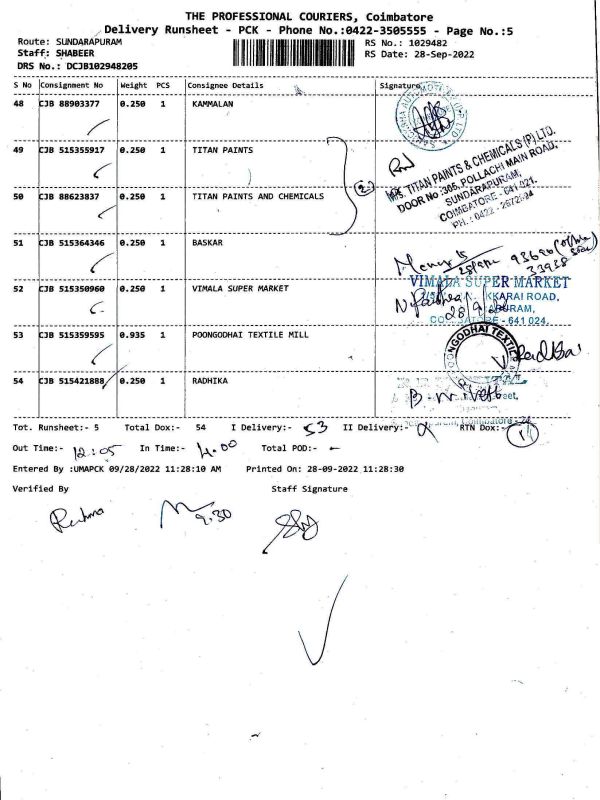 THE PROFESSIONAL COURIERS, Coimbatore
Delivery Runsheet - PCK - Phone No.:0422-3505555 - Page No.:5
Route: SUNDARAPURAM
RS No.: 1029482
Staff: SHABEER
RS Date: 28-Sep-2022
DRS No.: DCJB102948205
S No Consignment No Weight PCS Consignee Details Signature
48 CJB 88903377 0.250 1 KAMMALAN
49 CJB 515355917 0.250 1 TITAN PAINTS
50 CJB 88623837 0.250 1 TITAN PAINTS AND CHEMICALS
2
M/s. TITAN PAINTS & CHEMICALS (P) LTD.
DOOR No :305, POLLACHI MAIN ROAD,
SUNDARAPURAM,
COIMBATORE - 641 021.
51 CJB 515364346 0.250 1 BASKAR
52 CJB 515350960 0.250 1 VIMALA SUPER MARKET
VIMALA SUPER MARKET
KKARAI ROAD,
28/9/22
COIMBATORE - 641 024.
53 CJB 515359595 0.935 1 POONGODHAI TEXTILE MILL
POONGODHAI TEXTILE
54 CJB 515421888 0.250 1 RADHIKA
Tot. Runsheet:- 5 Total Dox:- 54 I Delivery:- 53 II Delivery:- RTN Dox:- 1
Out Time:- 12:05 In Time:- 4.00 Total POD:- -
Entered By :UMAPCK 09/28/2022 11:28:10 AM Printed On: 28-09-2022 11:28:30
Verified By Staff Signature
9.30